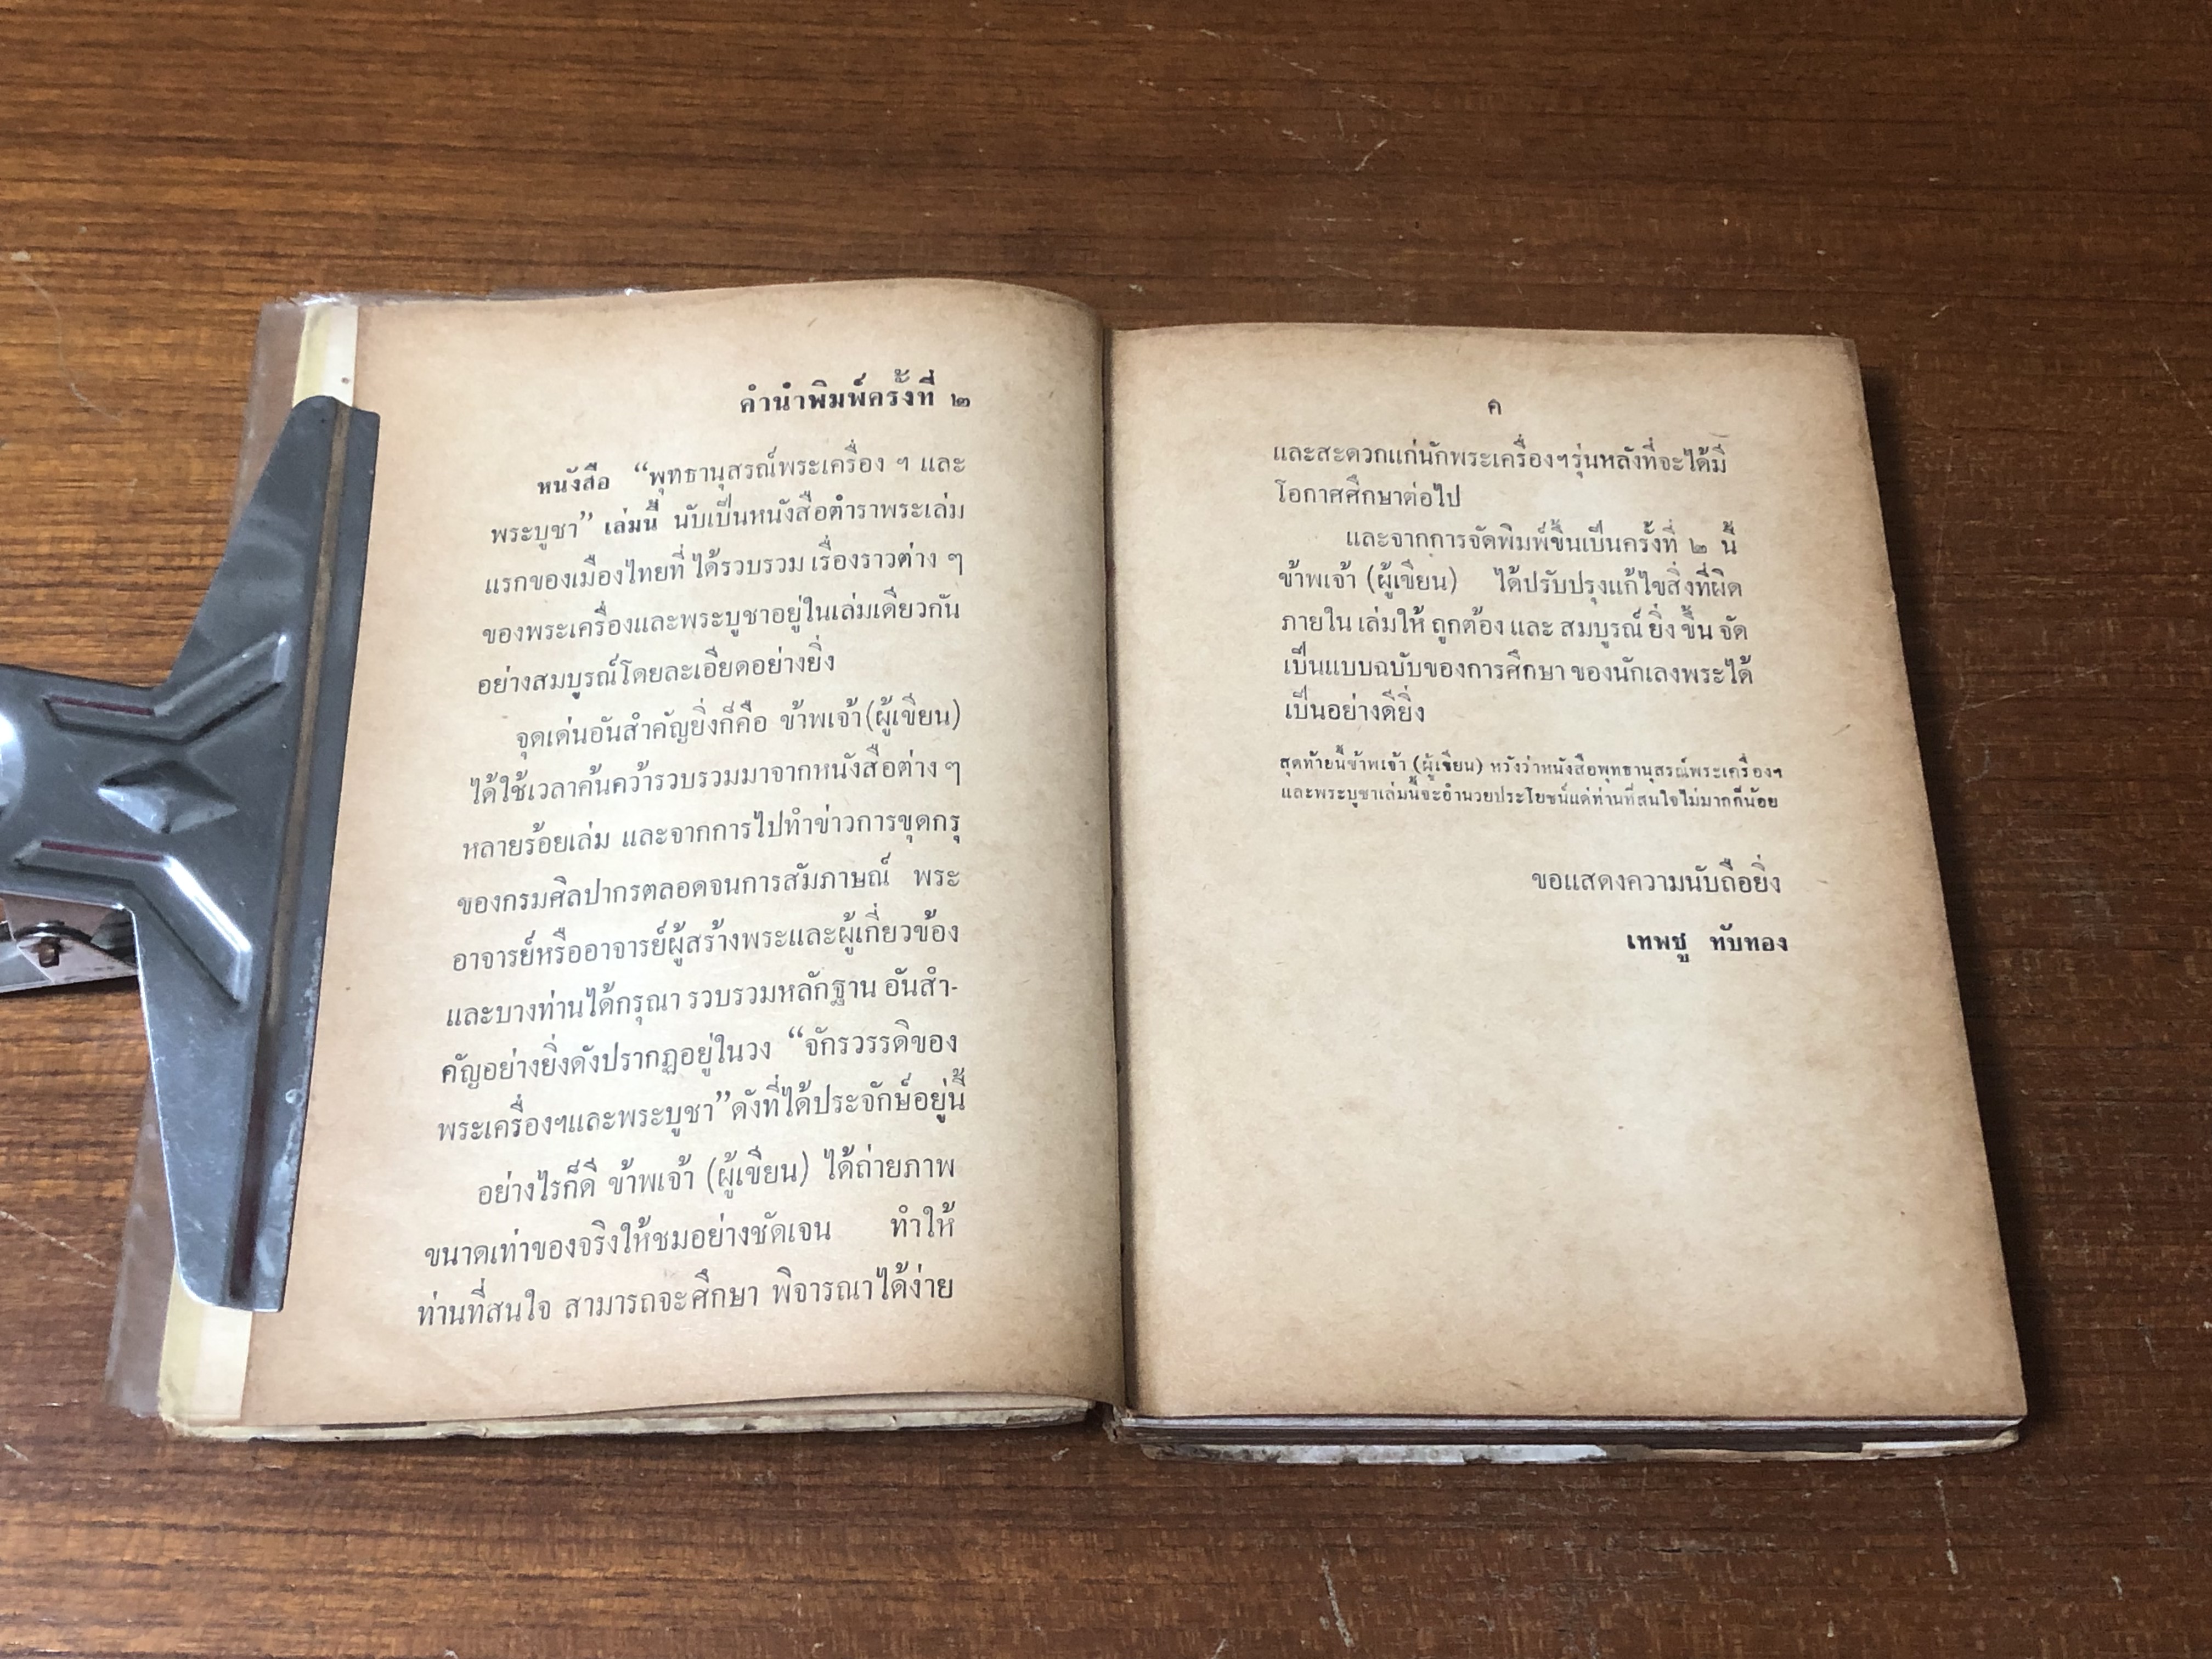 คำนำพิมพ์ครั้งที่ ๒
หนังสือ “พุทธานุสรณ์พระเครื่อง ฯ และ
พระบูชา” เล่มนี้ นับเป็นหนังสือตำราพระเล่ม
แรกของเมืองไทยที่ ได้รวบรวม เรื่องราวต่าง ๆ
ของพระเครื่องและพระบูชาอยู่ในเล่มเดียวกัน
อย่างสมบูรณ์โดยละเอียดอย่างยิ่ง
จุดเด่นอันสำคัญยิ่งก็คือ ข้าพเจ้า (ผู้เขียน)
ได้ใช้เวลาค้นคว้ารวบรวมมาจากหนังสือต่าง ๆ
หลายร้อยเล่ม และจากการไปทำข่าวการขุดกรุ
ของกรมศิลปากรตลอดจนการสัมภาษณ์ พระ
อาจารย์หรืออาจารย์ผู้สร้างพระและผู้เกี่ยวข้อง
และบางท่านได้กรุณา รวบรวมหลักฐาน อันสำ-
คัญอย่างยิ่งดังปรากฏอยู่ในวง “จักรวรรดิของ
พระเครื่องฯและพระบูชา”ดังที่ได้ประจักษ์อยู่นี้
อย่างไรก็ดี ข้าพเจ้า (ผู้เขียน) ได้ถ่ายภาพ
ขนาดเท่าของจริงให้ชมอย่างชัดเจน ทำให้
ท่านที่สนใจ สามารถจะศึกษา พิจารณาได้ง่าย
ค
และสะดวกแก่นักพระเครื่องฯรุ่นหลังที่จะได้มี
โอกาศศึกษาต่อไป
และจากการจัดพิมพ์ขึ้นเป็นครั้งที่ ๒ นี้
ข้าพเจ้า (ผู้เขียน) ได้ปรับปรุงแก้ไขสิ่งที่ผิด
ภายใน เล่มให้ ถูกต้อง และ สมบูรณ์ ยิ่ง ขึ้น จัด
เป็นแบบฉบับของการศึกษา ของนักเลงพระได้
เป็นอย่างดียิ่ง
สุดท้ายนี้ข้าพเจ้า (ผู้เขียน) หวังว่าหนังสือพุทธานุสรณ์พระเครื่องฯ
และพระบูชาเล่มนี้จะอำนวยประโยชน์แด่ท่านที่สนใจไม่มากก็น้อย
ขอแสดงความนับถือยิ่ง
เทพชู ทับทอง